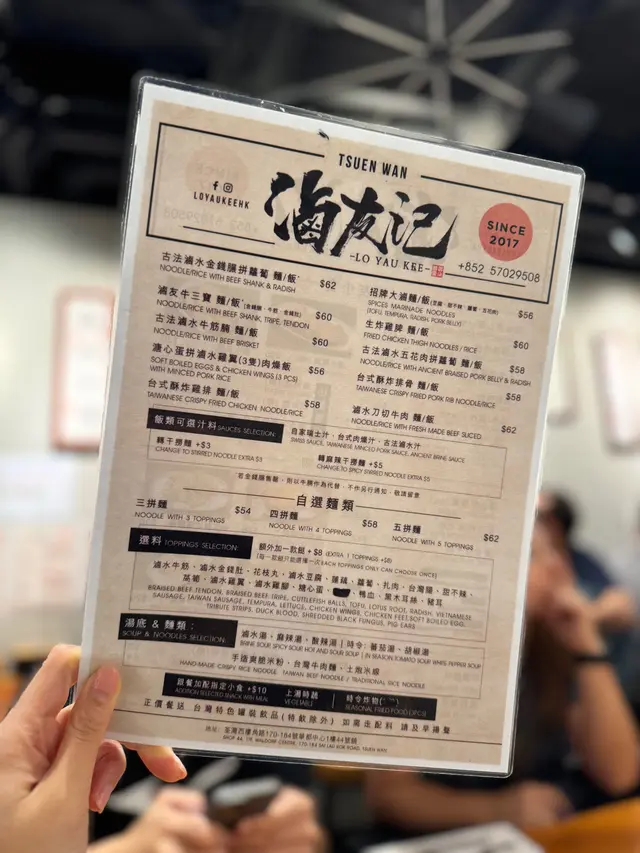 TSUEN WAN
LOYAUKEEHK
滷友记
-LO YAU KEE-
SINCE
2017
+852 57029508
古法滷水金錢腱拼蘿蔔 麵/飯* $62
NOODLE/RICE WITH BEEF SHANK & RADISH
滷友牛三寶 麵/飯*(金錢腱、牛筋、金錢肚) $60
NOODLE/RICE WITH BEEF SHANK, TRIPE, TENDON
古法滷水牛筋腩 麵/飯 $60
NOODLE/RICE WITH BEEF BRISKET
溏心蛋拼滷水雞翼(3隻)肉燥飯 $56
SOFT BOILED EGGS & CHICKEN WINGS (3 PCS)
WITH MINCED PORK RICE
台式酥炸雞排 麵/飯 $58
TAIWANESE CRISPY FRIED CHICKEN NOODLE/RICE
招牌大滷麵/飯 $56
SPICES MARINADE NOODLES
(TOFU, TEMPURA, RADISH, PORK BELLY)
生炸雞髀 麵/飯 $60
FRIED CHICKEN THIGH NOODLES / RICE
古法滷水五花肉拼蘿蔔 麵/飯 $58
NOODLE/RICE WITH ANCIENT BRAISED PORK BELLY & RADISH
台式酥炸排骨 麵/飯 $58
TAIWANESE CRISPY FRIED PORK RIB NOODLE/RICE
滷水刀切牛肉 麵/飯 $62
NOODLE/RICE WITH FRESH MADE BEEF SLICED
飯類可選汁料 SAUCES SELECTION:
自家瑞士汁、台式肉燥汁、古法滷水汁
SWISS SAUCE, TAIWANESE MINCED PORK SAUCE, ANCIENT BRINE SAUCE
轉干撈麵 +$3
CHANGE TO STIRRED NOODLE EXTRA $3
轉麻辣干撈麵 +$5
CHANGE TO SPICY STIRRED NOODLE EXTRA $5
若金錢腱售罄，則以牛腱作為代替，不作另行通知，敬請留意
自選麵類
三拼麵 $54
NOODLE WITH 3 TOPPINGS
四拼麵 $58
NOODLE WITH 4 TOPPINGS
五拼麵 $62
NOODLE WITH 5 TOPPINGS
選料 TOPPINGS SELECTION:
額外加一款餸 + $8 (EXTRA 1 TOPPINGS +$8)
(每一款餸只能選擇一次EACH TOPPINGS ONLY CAN CHOOSE ONCE)
滷水牛筋、滷水金錢肚、花枝丸、滷水豆腐、蓮藕、蘿蔔、扎肉、台灣腸、甜不辣、
萵筍、滷水雞翼、滷水雞腳、糖心蛋、鴨血、黑木耳絲、豬耳
BRAISED BEEF TENDON, BRAISED BEEF TRIPE, CUTTLEFISH BALLS, TOFU, LOTUS ROOT, RADISH, VIETNAMESE
SAUSAGE, TAIWAN SAUSAGE, TEMPURA, LETTUCE, CHICKEN WINGS, CHICKEN FEET, SOFT BOILED EGG,
TRIBUTE STRIPS, DUCK BLOOD, SHREDDED BLACK FUNGUS, PIG EARS
湯底 & 麵類:
SOUP & NOODLES SELECTION:
滷水湯、麻辣湯、酸辣湯 | 時令: 蕃茄湯、胡椒湯
BRINE SOUP, SPICY SOUP, HOT AND SOUR SOUP | IN SEASON: TOMATO SOUP, WHITE PEPPER SOUP
手造爽脆米粉、台灣牛肉麵、土版米線
HAND-MADE CRISPY RICE NOODLE TAIWAN BEEF NOODLE / TRADITIONAL RICE NOODLE
跟餐加配指定小食 +$10
ADDITION SELECTED SNACK WITH MEAL
上湯時蔬
VEGETABLE
時令炸物
SEASONAL FRIED FOOD (3PCS)
正價餐送 台灣特色罐裝飲品(特飲除外) 如需走配料 請及早揚聲
地址: 荃灣西樓角路170-184號華都中心1樓44號舖
SHOP 44, 1/F, WALDORF CENTRE, 170-184 SAI LAU KOK ROAD, TSUEN WAN